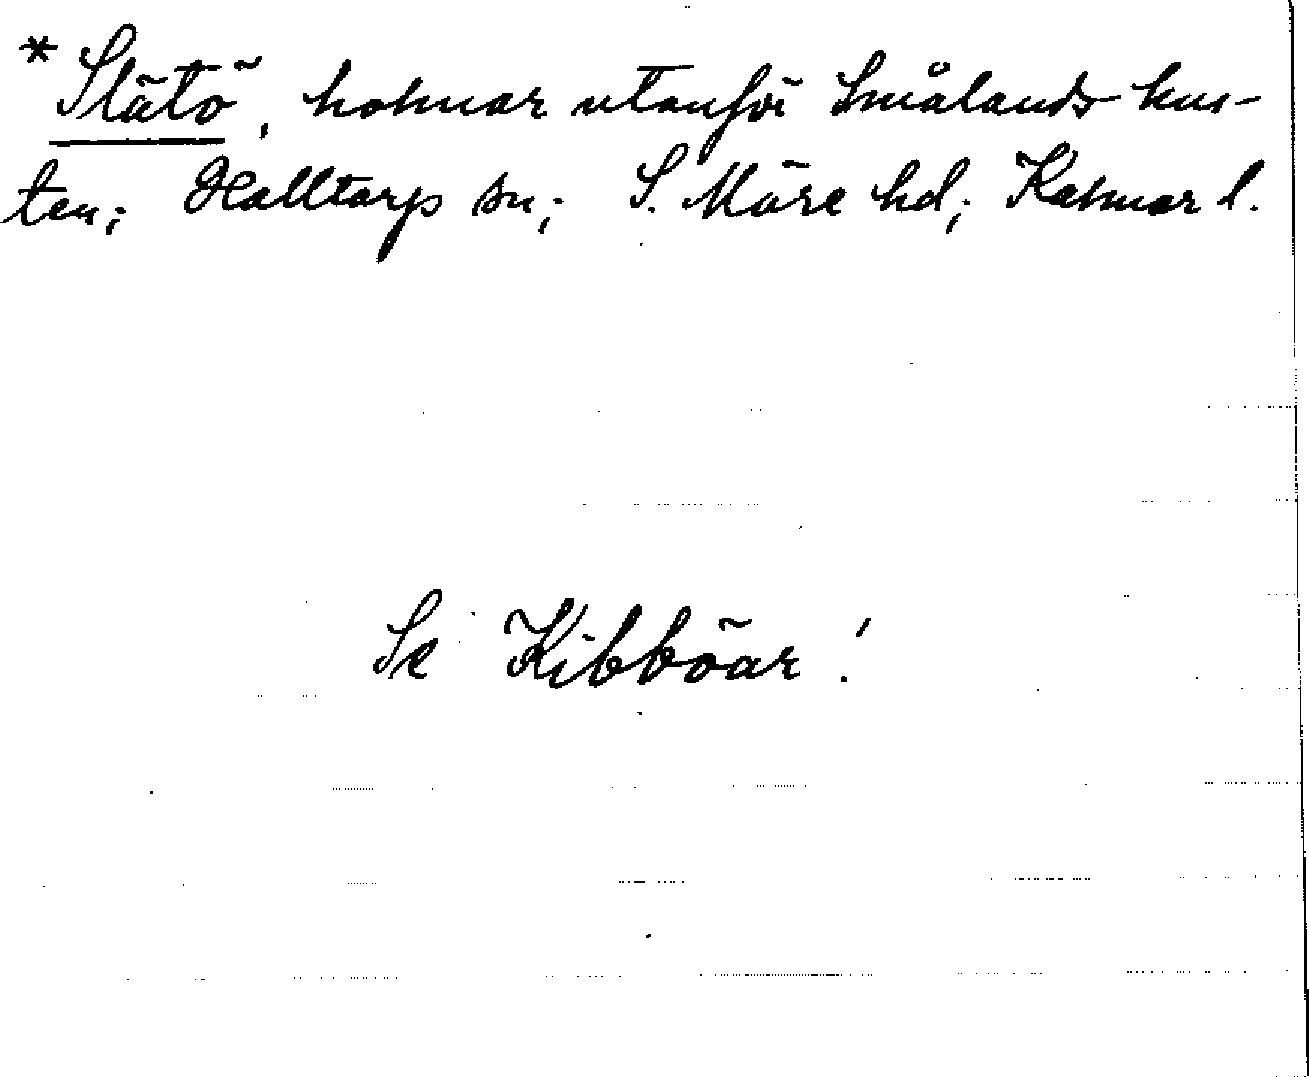 * Slätö, holmar utanför Smålands kus-
ten; Halltorps sn; S. Möre hd; Kalmar l.
Se Kibböar!